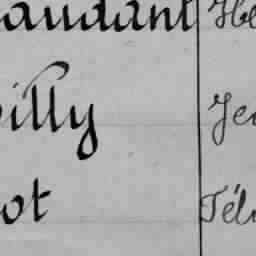 audant He
illy Je
ot Tél